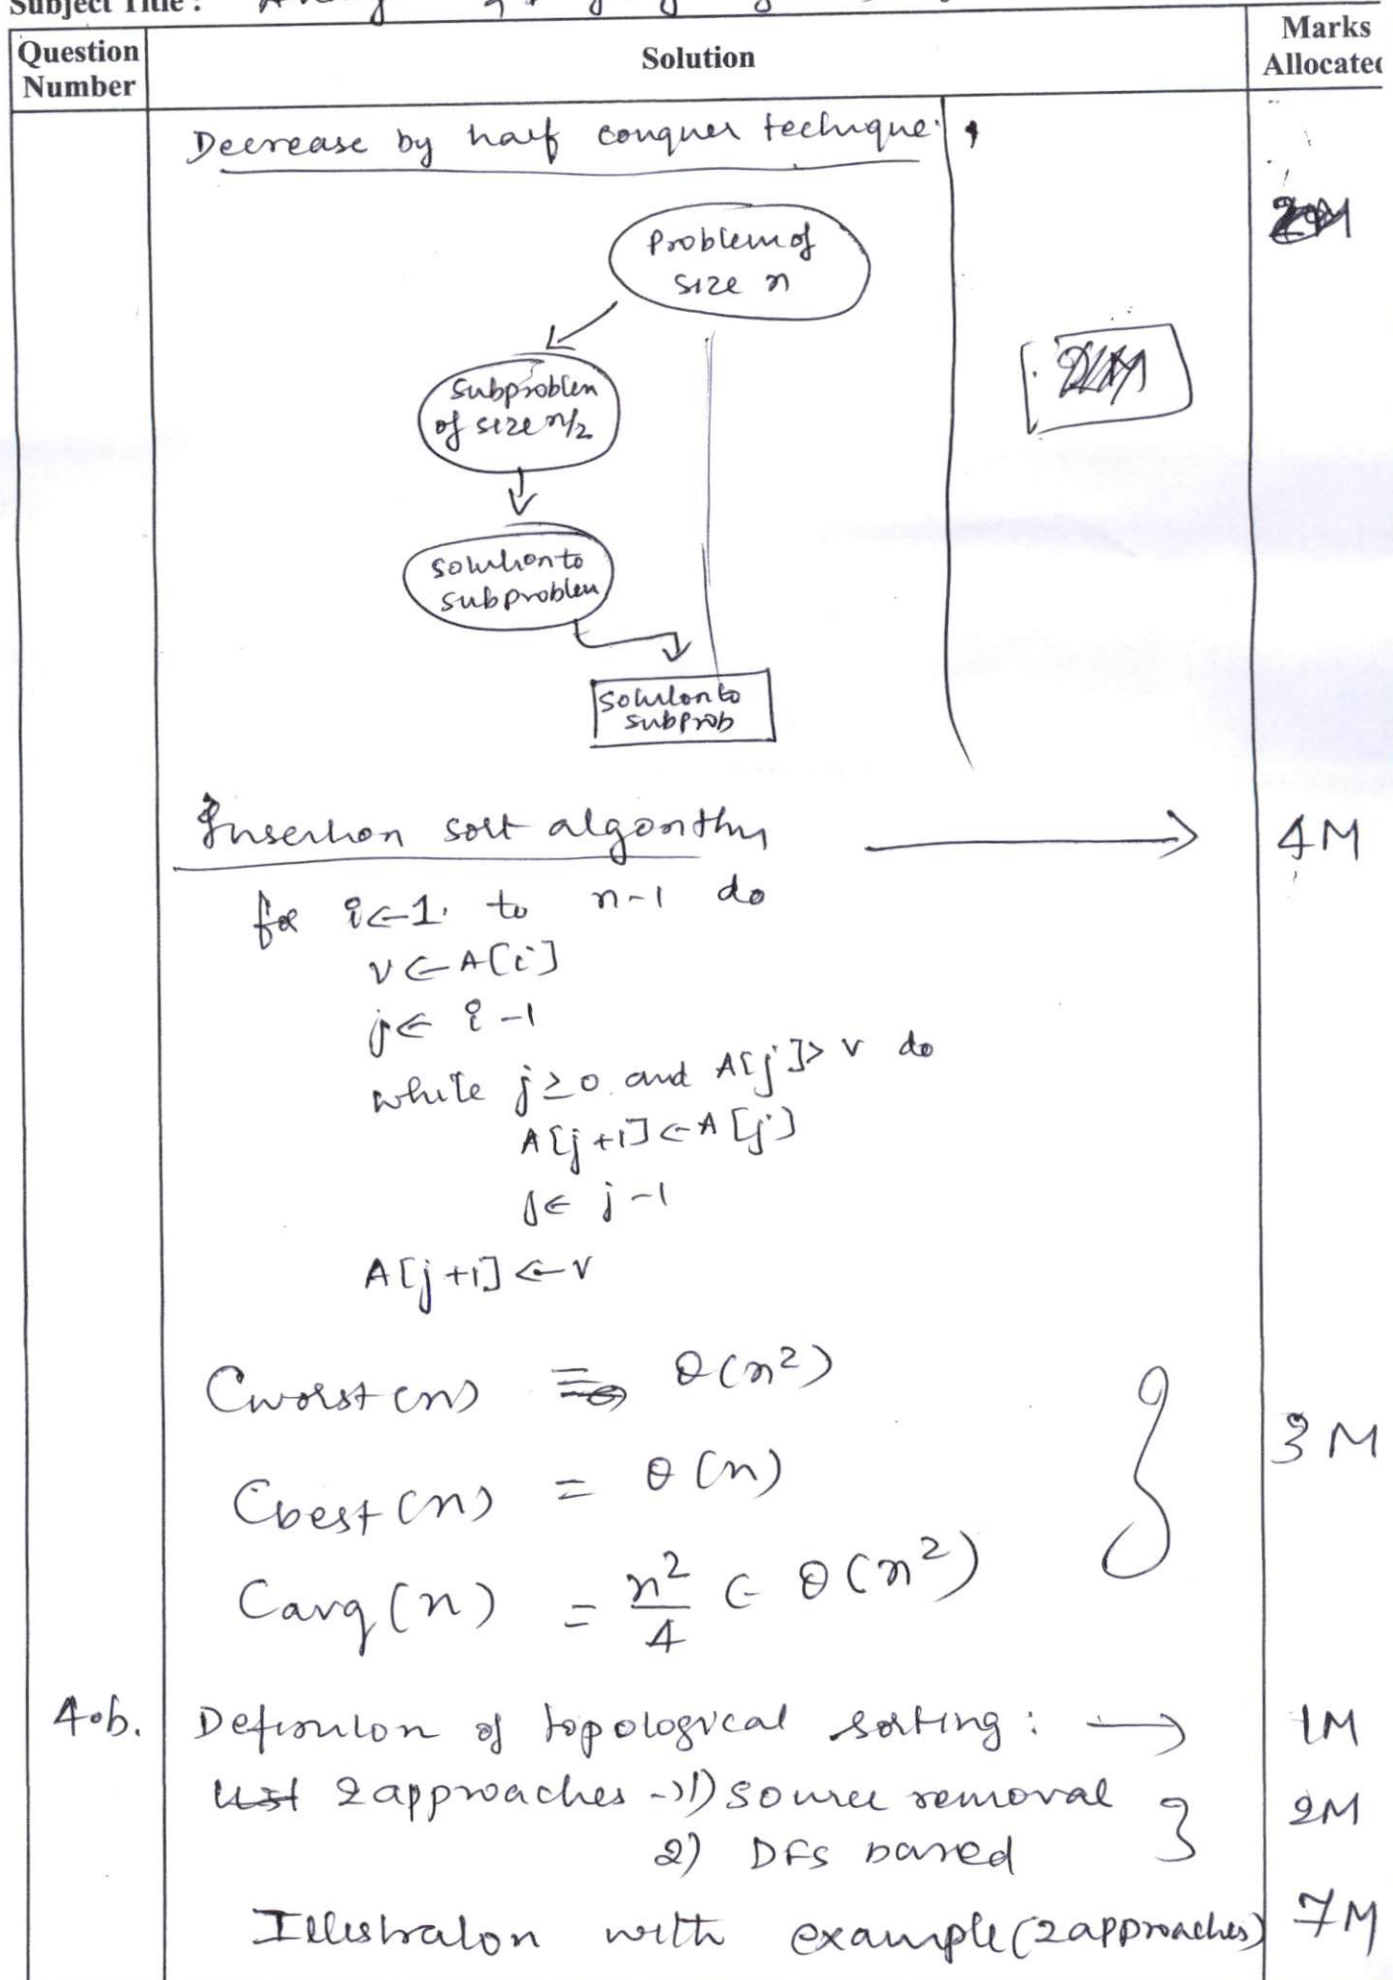 Subject Title :
Question Number
Solution
Marks Allocated
Decrease by half conquer technique.
2M
Problem of
size n
Subproblem
of size n/2
Solution to
subproblem
Solution to
subprob
Insertion sort algorithm → 4M
for i←1 to n-1 do
v ← A[i]
j ← i-1
while j ≥ 0 and A[j] > v do
A[j+1] ← A[j]
j ← j-1
A[j+1] ← v
Cworst(n) = Θ(n²)
Cbest(n) = Θ(n) } 3M
Cavg(n) = n²/4 ∈ Θ(n²)
4.b. Definition of topological sorting : → 1M
2 approaches → 1) source removal } 2M
2) DFS based
Illustration with example (2 approaches) 7M